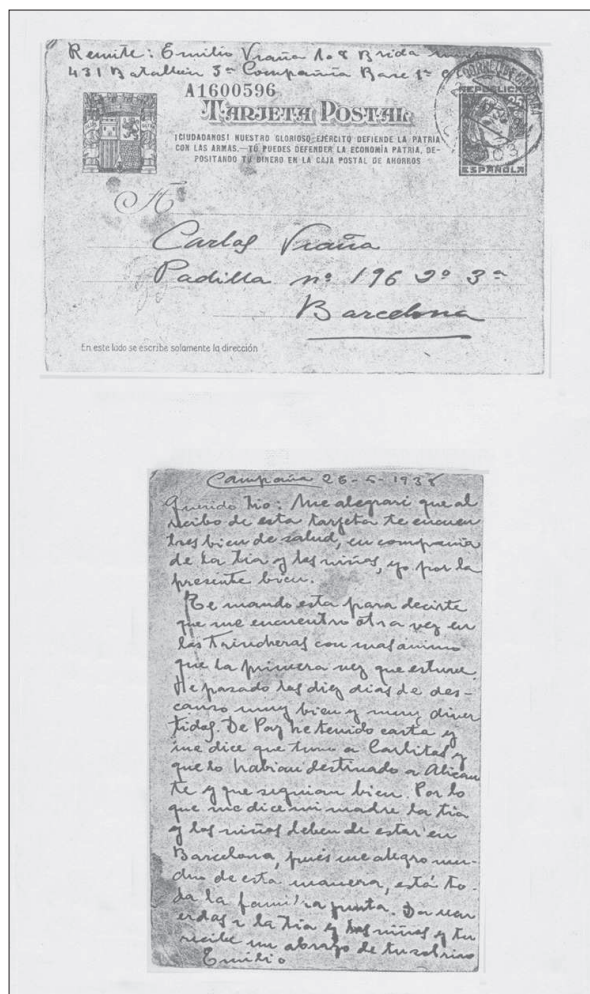 Remite: Emilio Viaña 108 Brida
431 Batallón 3ª Compañía Base 1ª
A1600596
TARJETA POSTAL
¡CIUDADANOS! NUESTRO GLORIOSO EJÉRCITO DEFIENDE LA PATRIA
CON LAS ARMAS.—TÚ PUEDES DEFENDER LA ECONOMÍA PATRIA, DE-
POSITANDO TU DINERO EN LA CAJA POSTAL DE AHORROS
REPÚBLICA
25
ESPAÑOLA
A
Carlos Viaña
Padilla nº 196 2º 3ª
Barcelona
En este lado se escribe solamente la dirección
Campaña 26-5-1938
Querido tio: Me alegrari que al
recibo de esta tarjeta te encuen
tres bien de salud, en compañia
de la tia y los niños, yo por la
presente bien.
Te mando esta para decirte
que me encuentro otra vez en
las trincheras con mas animo
que la primera vez que estuve.
He pasado los diez dias de des-
canso muy bien y muy diver
tidos. De Paz he tenido carta y
me dice que tuvo a Carlitos y
que lo habian destinado a Alican
te y que seguian bien. Por lo
que me dice mi madre la tia
y los niños deben de estar en
Barcelona, pués me alegro mu-
cho de esta manera, está to-
da la familia junta. Da recu
erdos a la tia y los niños y tu
recibe un abrazo de tu sobrino
Emilio